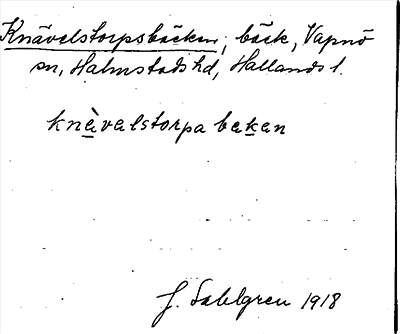 Knävelstorpsbäcken, bäck, Vapnö
sn, Halmstads hd, Hallands l.
knàvalstorpa bekan
J. Sahlgren 1918